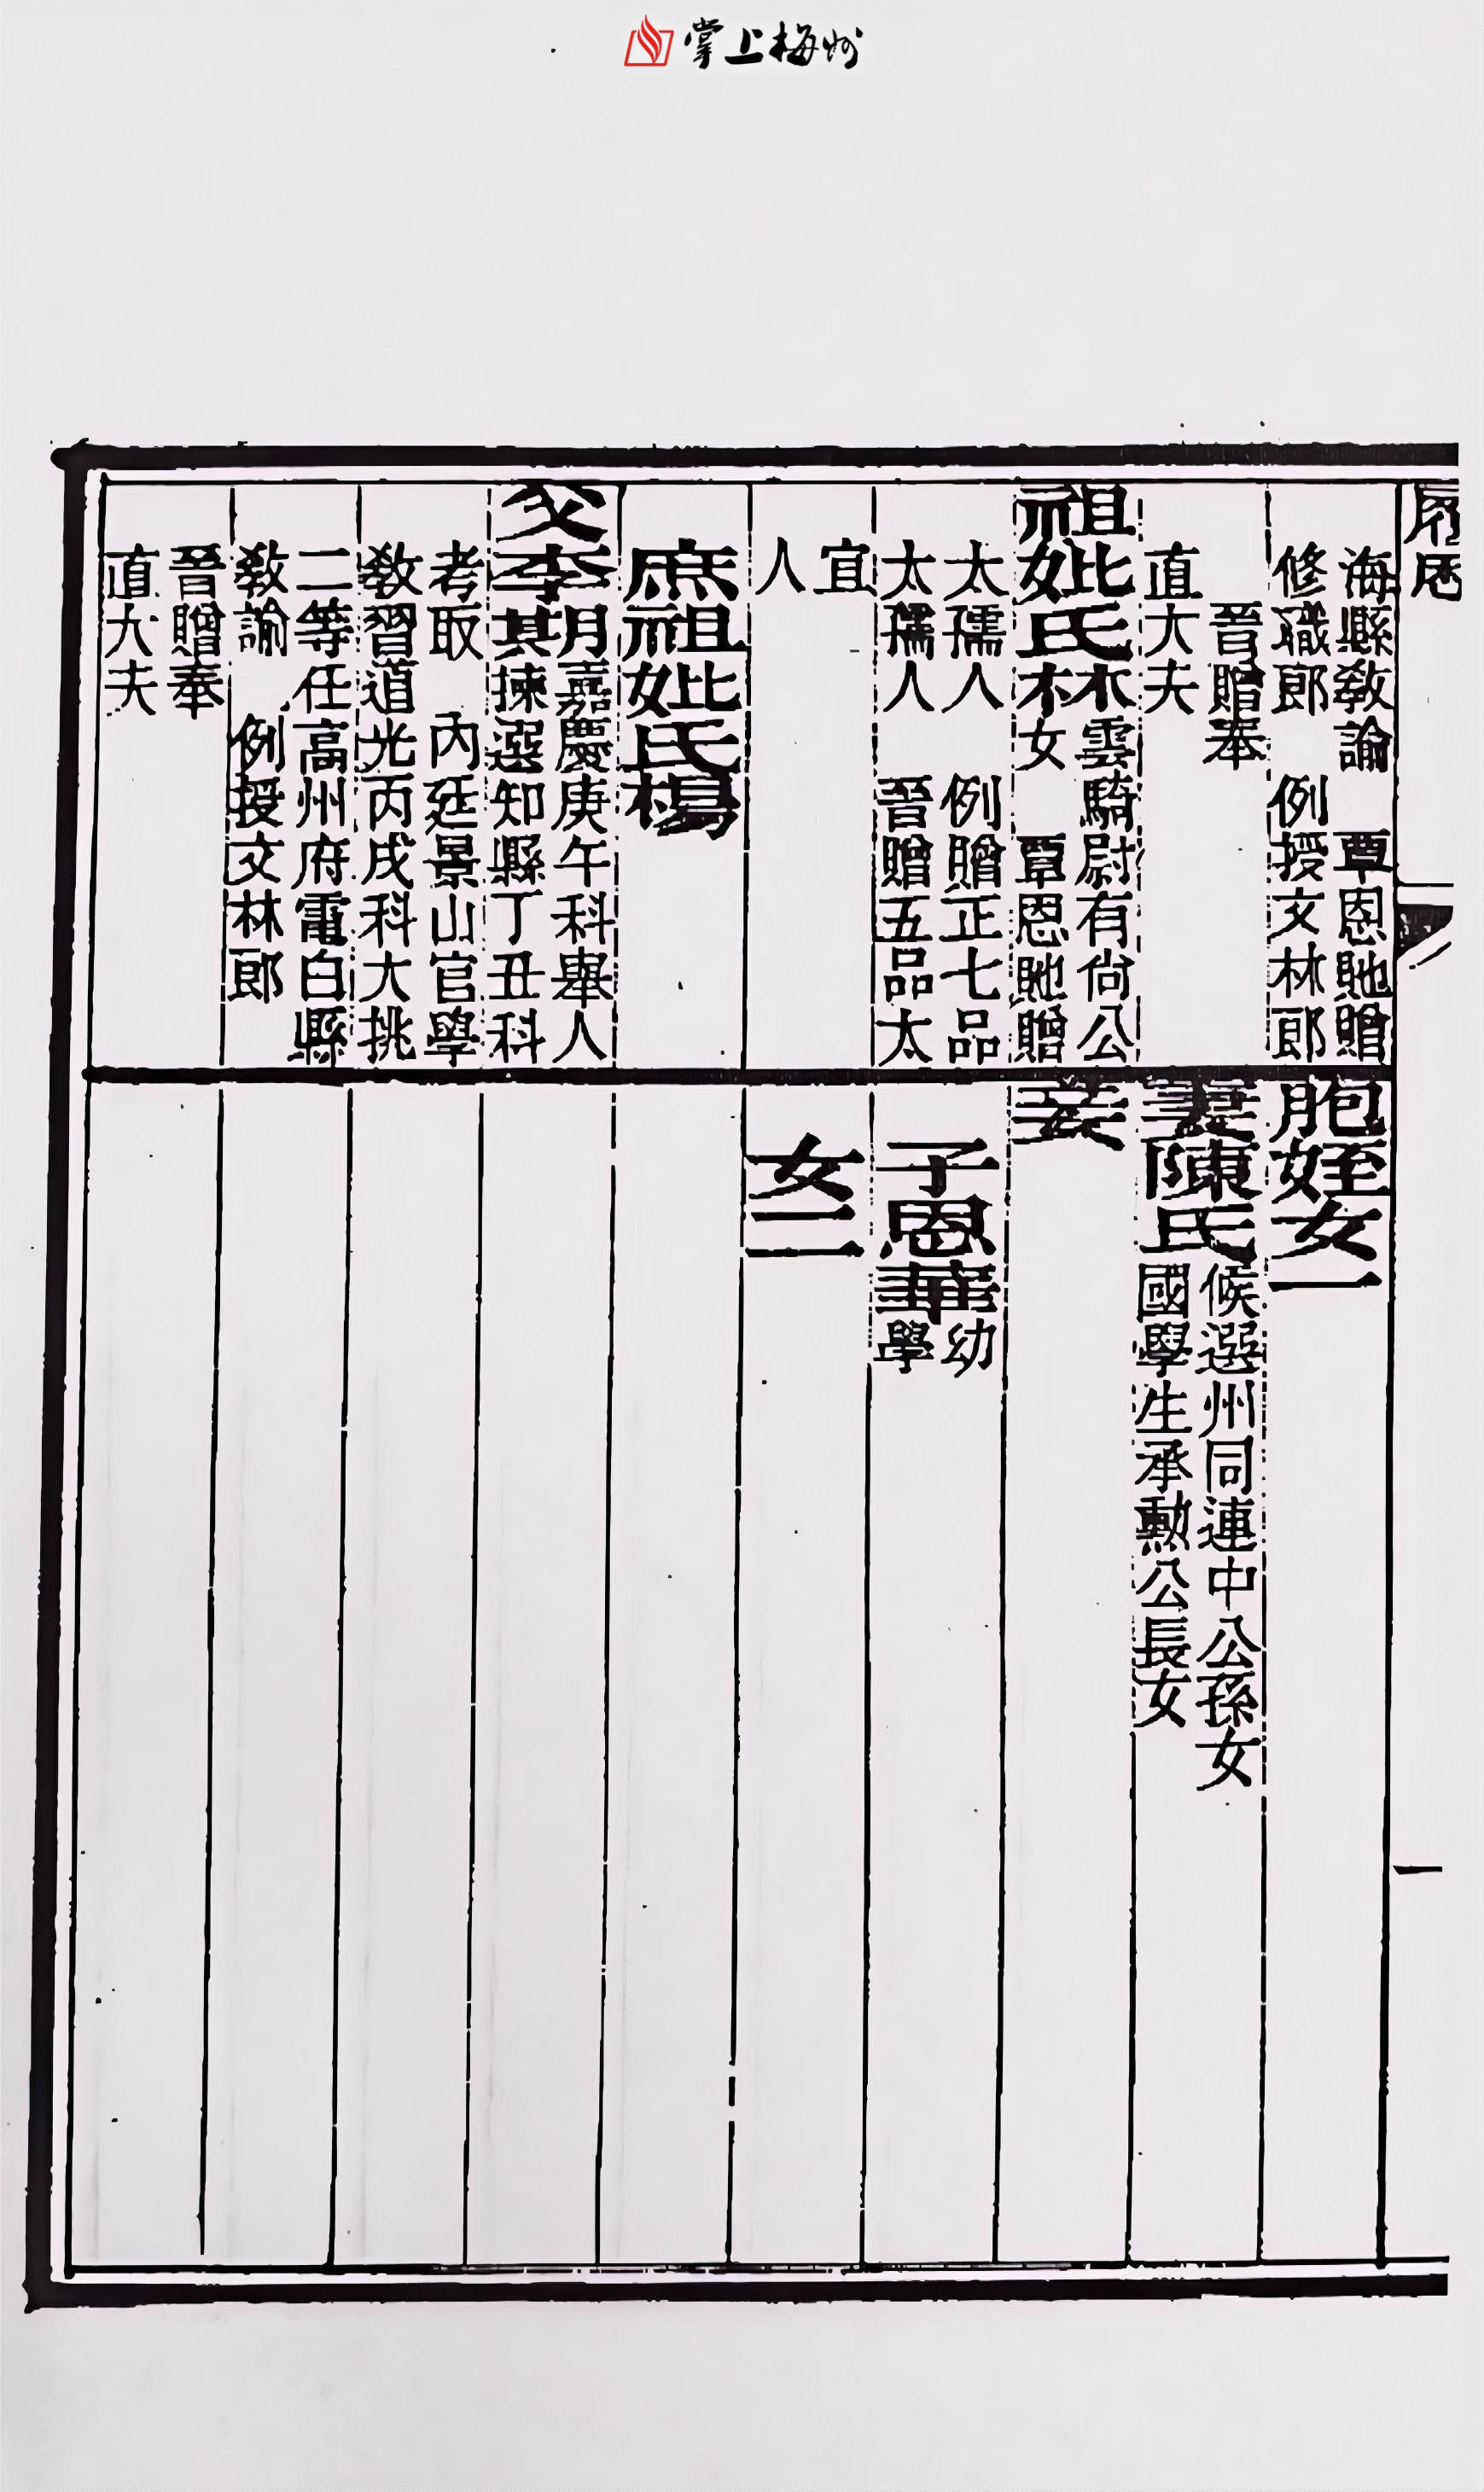 掌上梅州
履歷
海縣敎諭 覃恩貤贈
修職郎 例授文林郎
晉贈奉
直大夫
祖妣氏林
雲騎尉有尙公
女 覃恩貤贈
太孺人 例贈正七品
太孺人 晉贈五品太
宜
人
庶祖妣氏楊
父李其
明嘉慶庚午科舉人
揀選知縣丁丑科
考取 內廷景山官學
敎習道光丙戌科大挑
二等任高州府電白縣
敎諭 例授文林郎
晉贈奉
直大夫
胞姪女一
妻陳氏
候選州同連中公孫女
國學生承勳公長女
妾
子恩華
幼
學
女二
一